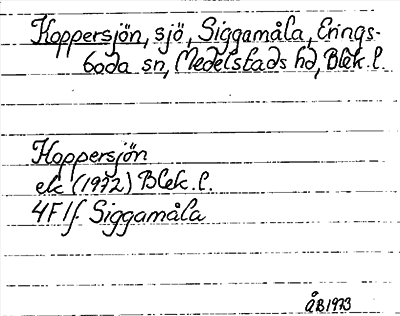 Koppersjön, sjö, Siggamåla, Erings-
boda sn, Medelstads hd, Blek. l.
Koppersjön
ek (1972) Blek. l.
4F1f Siggamåla
ÅB1973